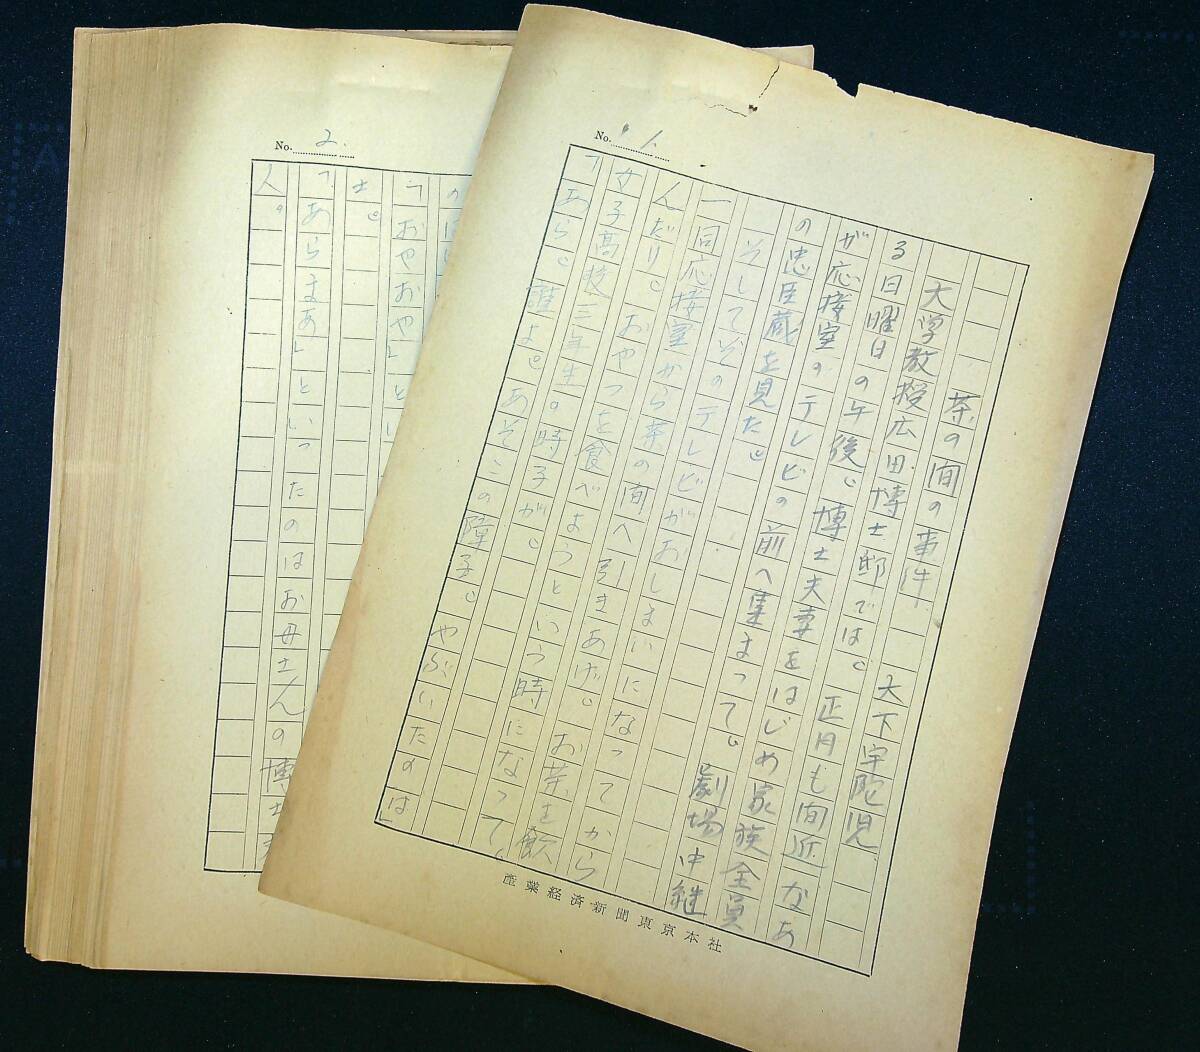 No. 1.
茶の間の事件 大下宇陀児
大学教授広田博士邸では。正月も間近なあ
る日曜日の午後。博士夫妻をはじめ家族全員
が応接室のテレビの前へ集まって。劇場中継
の忠臣蔵を見た。
そしてそのテレビがおしまいになってから
一同応接室から茶の間へ引きあげ。お茶を飲
んだり。おやつを食べようという時になって。
女子高校三年生の時子が。
「あら。誰よ。あそこの障子。やぶいたのは」
産業経済新聞東京本社
No. 2.
の
「おやおや」とい
士。
「あらまあ」といったのはお母さんの博士夫
人。